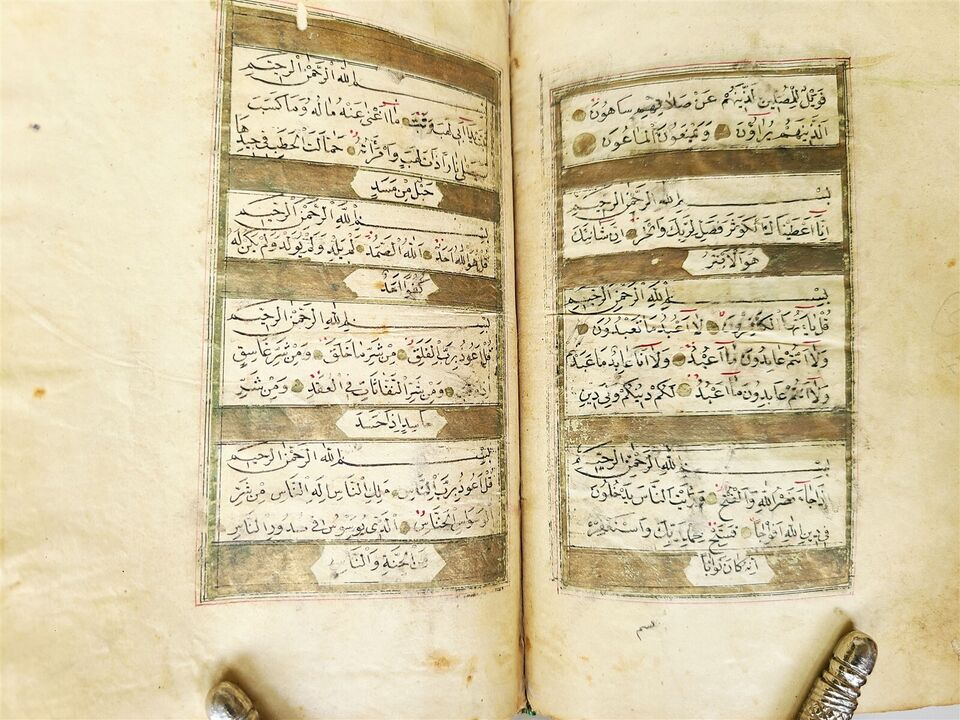 فويل للمصلين الذينهم عن صلاتهم ساهون
الذينهم يراؤن ويمنعون الماعون
بسم الله الرحمن الرحيم
انا اعطيناك الكوثر فصل لربك وانحر ان شانئك
هو الابتر
بسم الله الرحمن الرحيم
قل يا ايها الكافرون لا اعبد ما تعبدون
ولا انتم عابدون ما اعبد ولا انا عابد ما عبدتم
ولا انتم عابدون ما اعبد لكم دينكم ولي دين
بسم الله الرحمن الرحيم
اذا جاء نصر الله والفتح ورايت الناس يدخلون
في دين الله افواجا فسبح بحمد ربك واستغفره
انه كان توابا
بسم
بسم الله الرحمن الرحيم
تبت يدا ابي لهب وتب ما اغنى عنه ماله وما كسب
سيصلى نارا ذات لهب وامراته حمالة الحطب في جيدها
حبل من مسد
بسم الله الرحمن الرحيم
قل هو الله احد الله الصمد لم يلد ولم يولد ولم يكن له
كفوا احد
بسم الله الرحمن الرحيم
قل اعوذ برب الفلق من شر ما خلق ومن شر غاسق
اذا وقب ومن شر النفاثات في العقد ومن شر
حاسد اذا حسد
بسم الله الرحمن الرحيم
قل اعوذ برب الناس ملك الناس اله الناس من شر
الوسواس الخناس الذي يوسوس في صدور الناس
من الجنة والناس